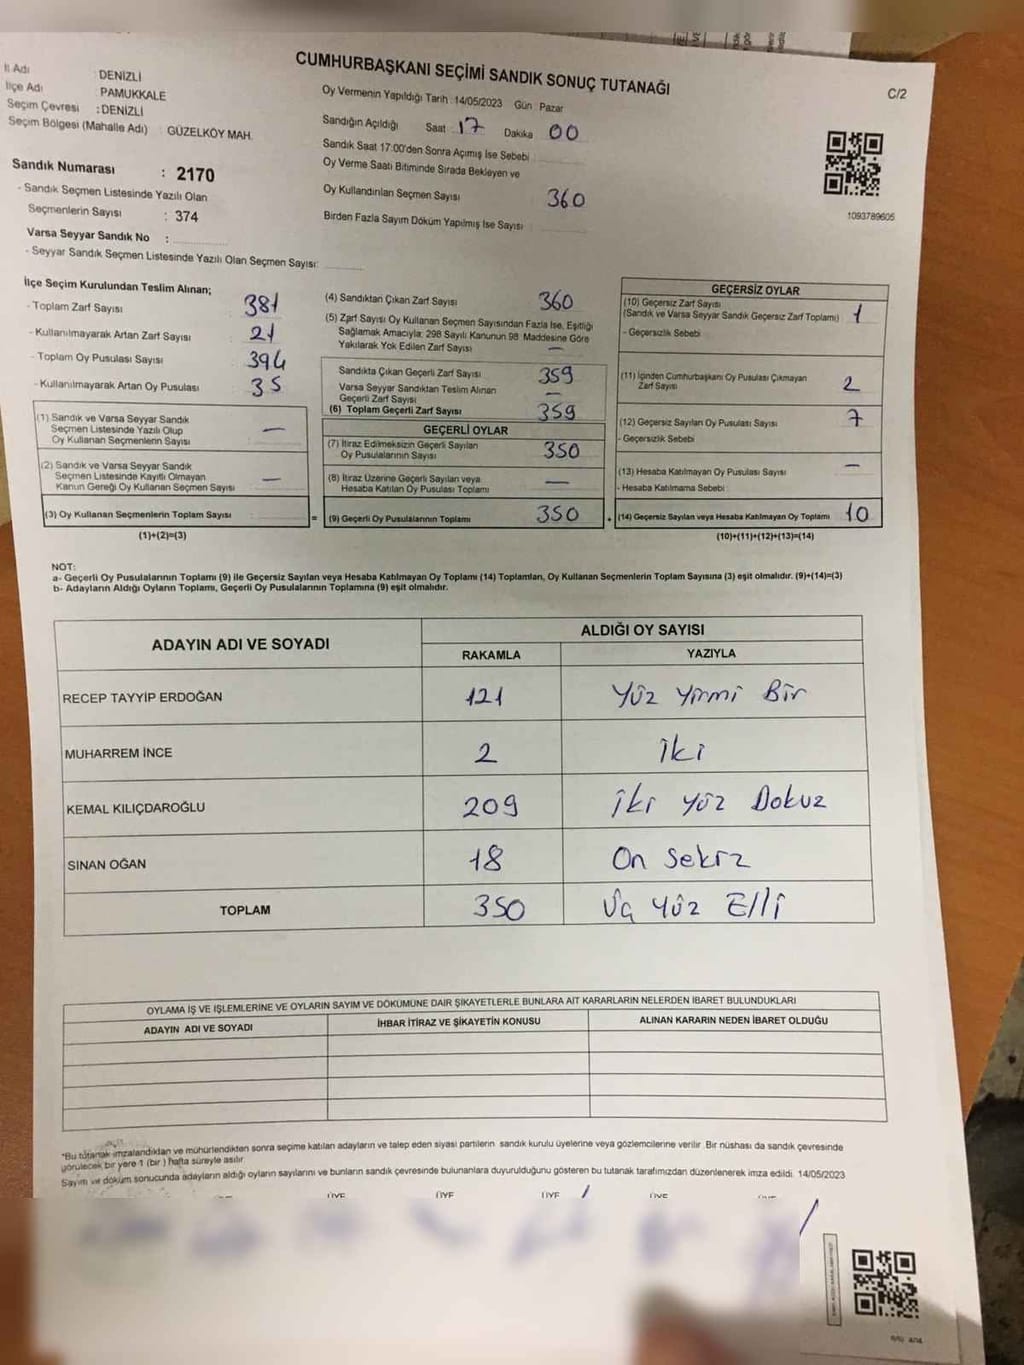 CUMHURBAŞKANI SEÇİMİ SANDIK SONUÇ TUTANAĞI
C/2
İl Adı DENİZLİ
İlçe Adı PAMUKKALE
Seçim Çevresi : DENİZLİ
Seçim Bölgesi (Mahalle Adı) GÜZELKÖY MAH.
Sandık Numarası : 2170
- Sandık Seçmen Listesinde Yazılı Olan
Seçmenlerin Sayısı : 374
Varsa Seyyar Sandık No :
- Seyyar Sandık Seçmen Listesinde Yazılı Olan Seçmen Sayısı:
Oy Vermenin Yapıldığı Tarih : 14/05/2023 Gün : Pazar
Sandığın Açıldığı Saat 17 Dakika 00
Sandık Saat 17:00'den Sonra Açımış İse Sebebi
Oy Verme Saati Bitiminde Sırada Bekleyen ve
Oy Kullandırılan Seçmen Sayısı 360
Birden Fazla Sayım Döküm Yapılmış İse Sayısı
1093789605
İlçe Seçim Kurulundan Teslim Alınan;
- Toplam Zarf Sayısı 381
- Kullanılmayarak Artan Zarf Sayısı 21
- Toplam Oy Pusulası Sayısı 394
- Kullanılmayarak Artan Oy Pusulası 35
(1) Sandık ve Varsa Seyyar Sandık
Seçmen Listesinde Yazılı Olup
Oy Kullanan Seçmenlerin Sayısı —
(2) Sandık ve Varsa Seyyar Sandık
Seçmen Listesinde Kayıtlı Olmayan
Kanun Gereği Oy Kullanan Seçmen Sayısı —
(3) Oy Kullanan Seçmenlerin Toplam Sayısı
(1)+(2)=(3)
(4) Sandıktan Çıkan Zarf Sayısı 360
(5) Zarf Sayısı Oy Kullanan Seçmen Sayısından Fazla İse, Eşitliği
Sağlamak Amacıyla 298 Sayılı Kanunun 98. Maddesine Göre
Yakılarak Yok Edilen Zarf Sayısı —
Sandıkta Çıkan Geçerli Zarf Sayısı 359
Varsa Seyyar Sandıktan Teslim Alınan
Geçerli Zarf Sayısı —
(6) Toplam Geçerli Zarf Sayısı 359
GEÇERLİ OYLAR
(7) İtiraz Edilmeksizin Geçerli Sayılan
Oy Pusulalarının Sayısı 350
(8) İtiraz Üzerine Geçerli Sayılan veya
Hesaba Katılan Oy Pusulası Toplamı —
= (9) Geçerli Oy Pusulalarının Toplamı 350
GEÇERSİZ OYLAR
(10) Geçersiz Zarf Sayısı
(Sandık ve Varsa Seyyar Sandık Geçersiz Zarf Toplamı) 1
- Geçersizlik Sebebi
(11) İçinden Cumhurbaşkanı Oy Pusulası Çıkmayan
Zarf Sayısı 2
(12) Geçersiz Sayılan Oy Pusulası Sayısı 7
- Geçersizlik Sebebi
(13) Hesaba Katılmayan Oy Pusulası Sayısı —
- Hesaba Katılmama Sebebi :
+ (14) Geçersiz Sayılan veya Hesaba Katılmayan Oy Toplamı 10
(10)+(11)+(12)+(13)=(14)
NOT:
a- Geçerli Oy Pusulalarının Toplamı (9) ile Geçersiz Sayılan veya Hesaba Katılmayan Oy Toplamı (14) Toplamları, Oy Kullanan Seçmenlerin Toplam Sayısına (3) eşit olmalıdır. (9)+(14)=(3)
b- Adayların Aldığı Oyların Toplamı, Geçerli Oy Pusulalarının Toplamına (9) eşit olmalıdır.
ADAYIN ADI VE SOYADI ALDIĞI OY SAYISI
RAKAMLA YAZIYLA
RECEP TAYYİP ERDOĞAN 121 Yüz Yirmi Bir
MUHARREM İNCE 2 iki
KEMAL KILIÇDAROĞLU 209 iki yüz Dokuz
SİNAN OĞAN 18 On Sekiz
TOPLAM 350 Üç Yüz Elli
OYLAMA İŞ VE İŞLEMLERİNE VE OYLARIN SAYIM VE DÖKÜMÜNE DAİR ŞİKAYETLERLE BUNLARA AİT KARARLARIN NELERDEN İBARET BULUNDUKLARI
ADAYIN ADI VE SOYADI İHBAR İTİRAZ VE ŞİKAYETİN KONUSU ALINAN KARARIN NEDEN İBARET OLDUĞU
*Bu tutanak imzalandıktan ve mühürlendikten sonra seçime katılan adayların ve talep eden siyasi partilerin sandık kurulu üyelerine veya gözlemcilerine verilir. Bir nüshası da sandık çevresinde
görülecek bir yere 1 (bir) hafta süreyle asılır.
Sayım ve döküm sonucunda adayların aldığı oyların sayılarını ve bunların sandık çevresinde bulunanlara duyurulduğunu gösteren bu tutanak tarafımızdan düzenlenerek imza edildi. 14/05/2023
ÜYE ÜYE ÜYE ÜYE